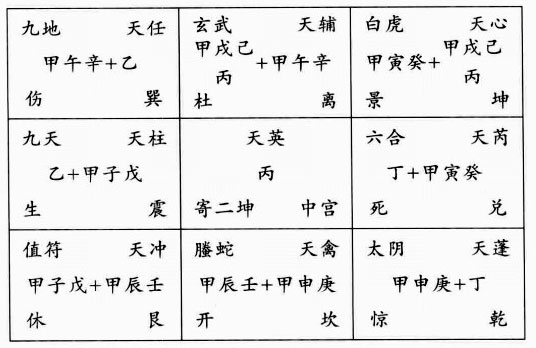 九地 天任
甲午辛+乙
伤 巽
玄武 天辅
甲戌己
丙
+甲午辛
杜 离
白虎 天心
甲寅癸+
甲戌己
丙
景 坤
九天 天柱
乙+甲子戊
生 震
天英
丙
寄二坤 中宫
六合 天芮
丁+甲寅癸
死 兑
值符 天冲
甲子戊+甲辰壬
休 艮
螣蛇 天禽
甲辰壬+甲申庚
开 坎
太阴 天蓬
甲申庚+丁
惊 乾